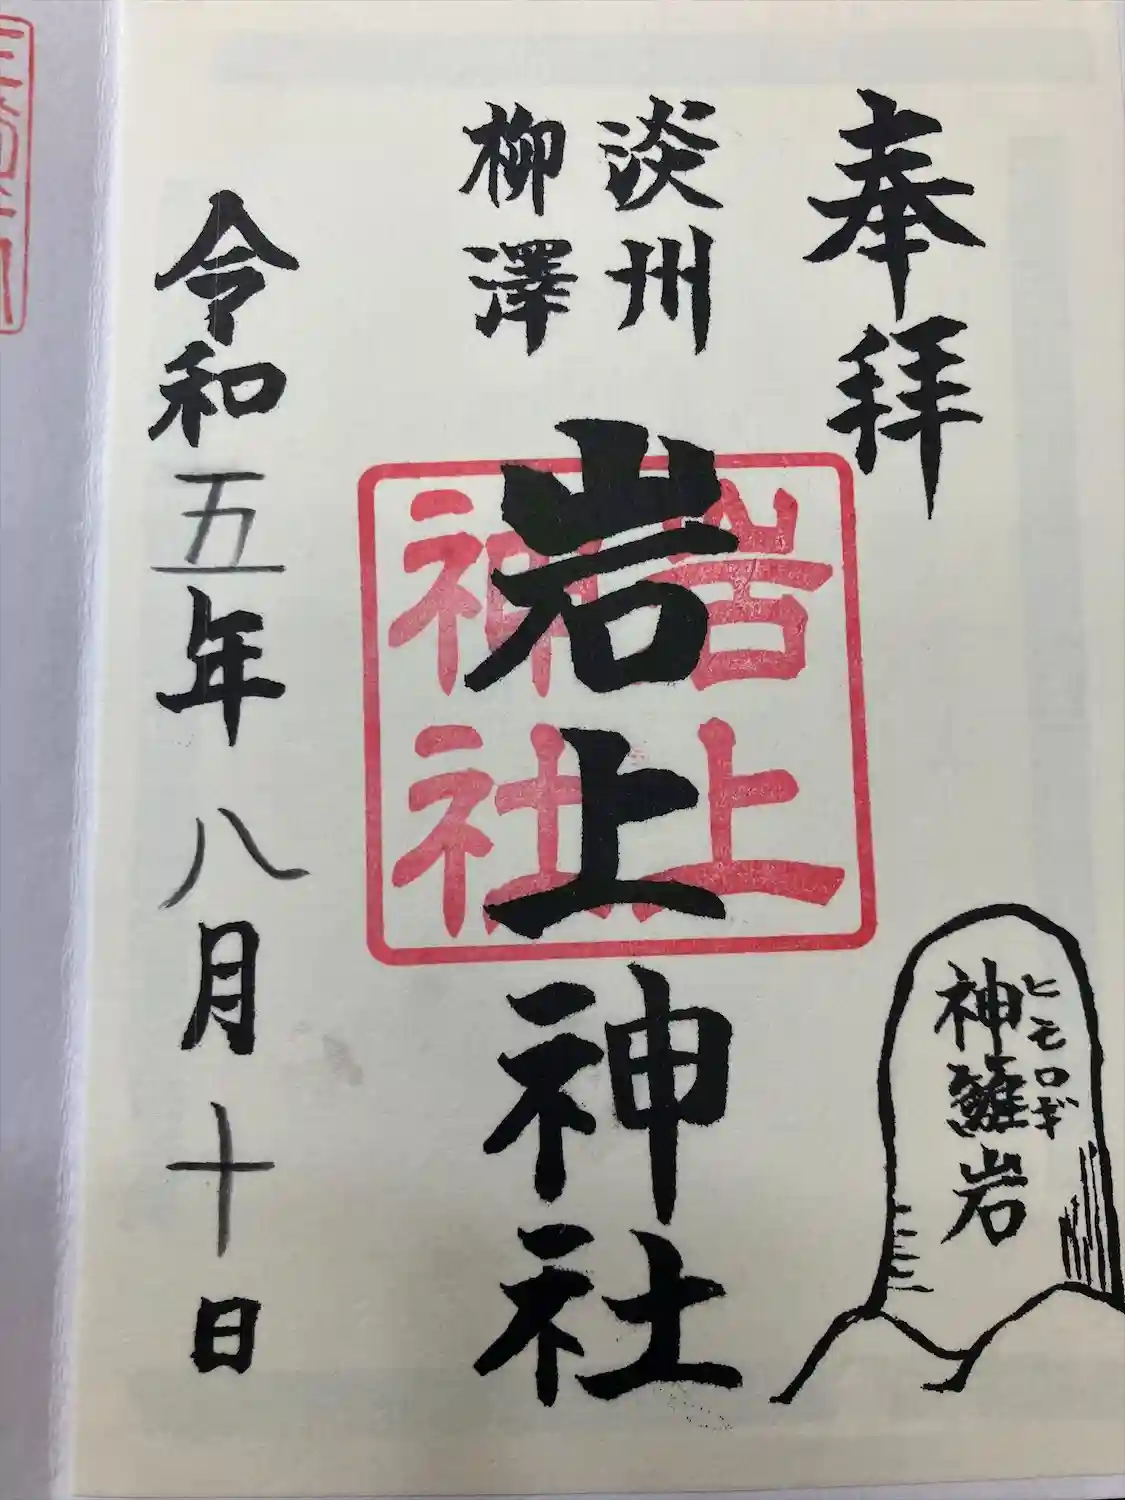 奉拝
淡州
柳澤
岩上神社
岩上
神社
ヒモロギ
神籬岩
令和五年八月十日